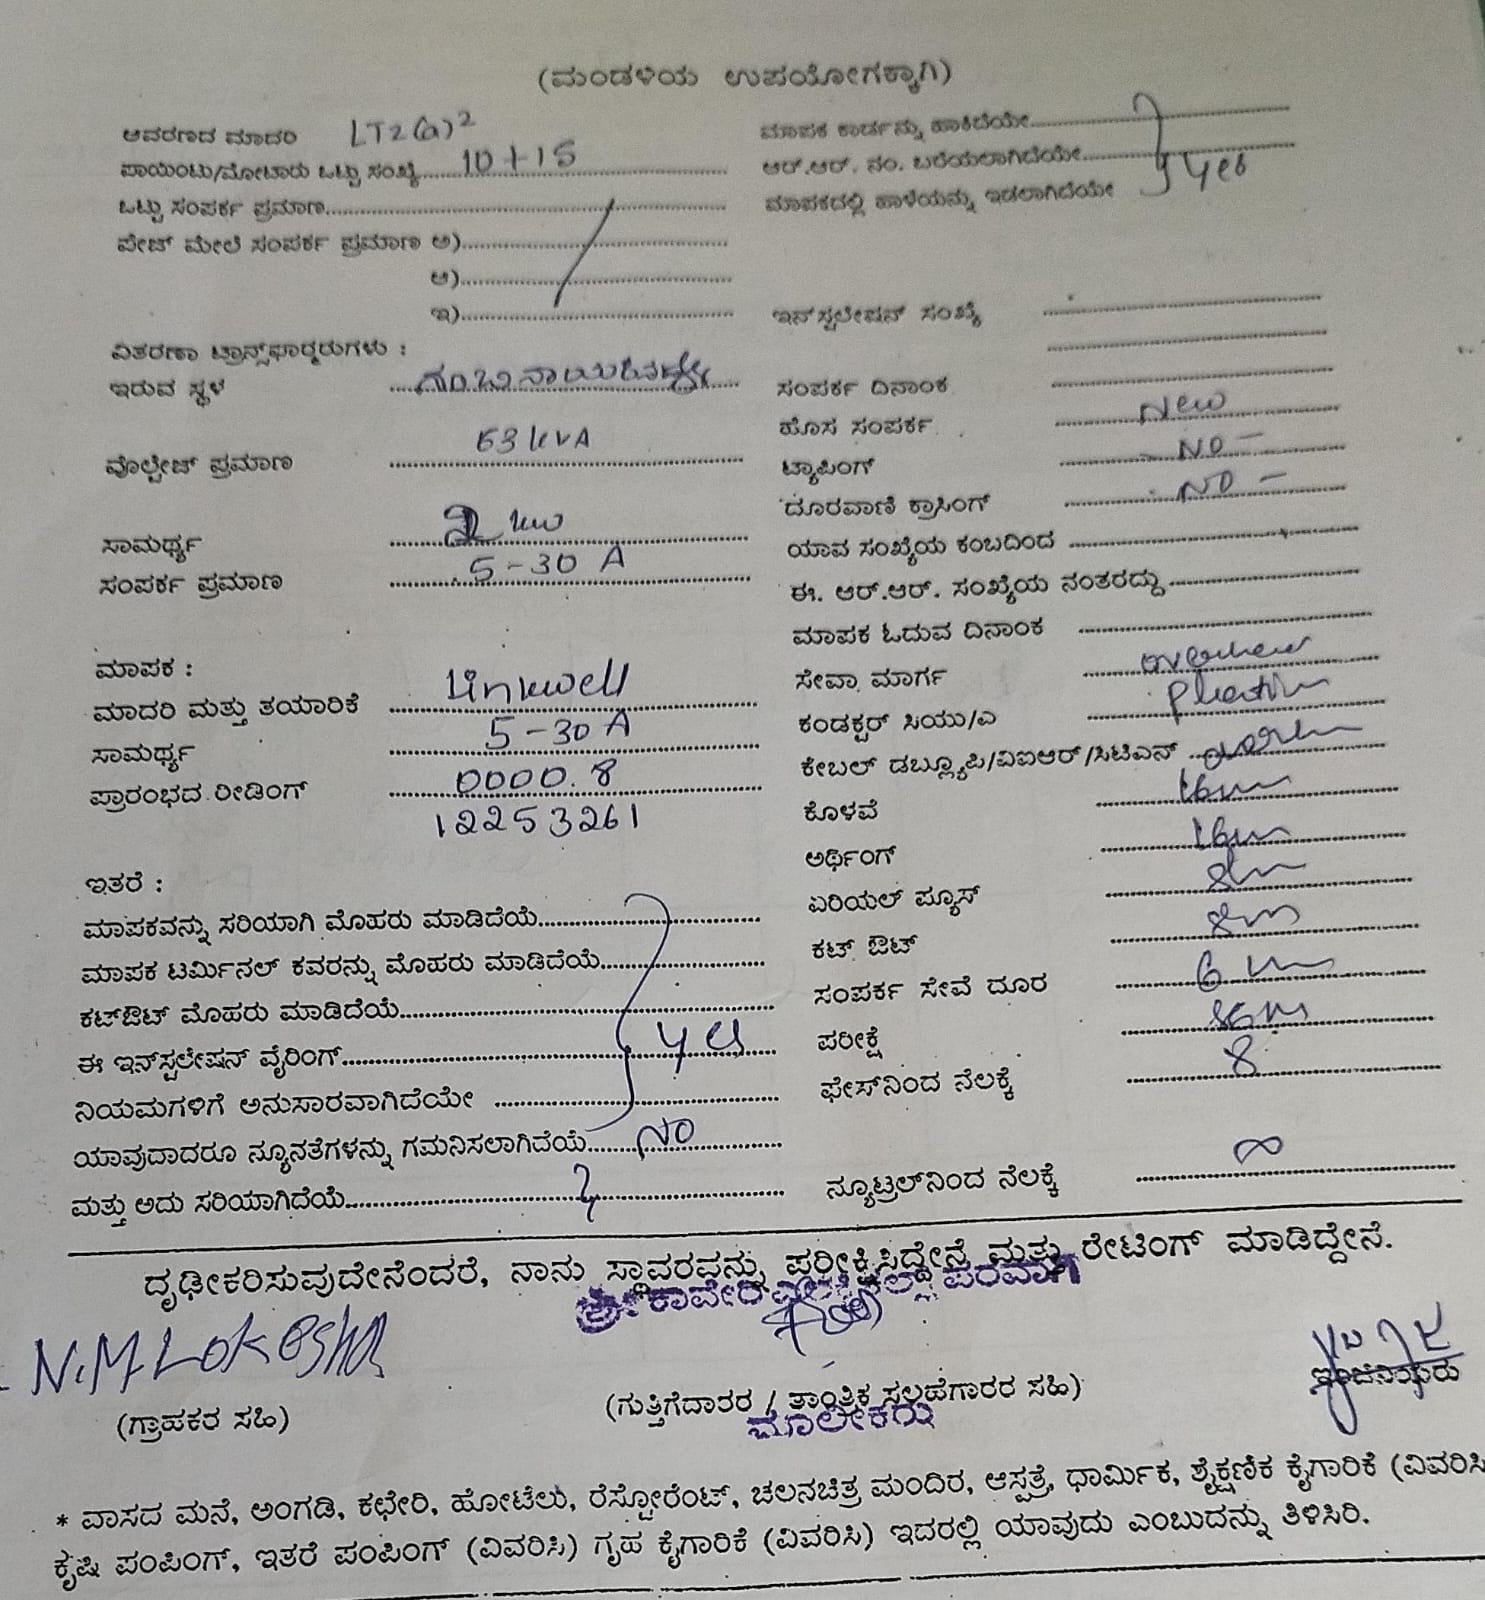 (ಮಂಡಳಿಯ ಉಪಯೋಗಕ್ಕಾಗಿ)
ಆವರಣದ ಮಾದರಿ LT2(a)2
ಪಾಯಿಂಟು/ಮೋಟಾರು ಒಟ್ಟು ಸಂಖ್ಯೆ 10+15
ಒಟ್ಟು ಸಂಪರ್ಕ ಪ್ರಮಾಣ
ಪೇಜ್ ಮೇಲೆ ಸಂಪರ್ಕ ಪ್ರಮಾಣ ಅ)
ಆ)
ಇ)
ವಿತರಣಾ ಟ್ರಾನ್ಸ್‌ಫಾರ್‍ಮರುಗಳು :
ಇರುವ ಸ್ಥಳ
63 kVA
ವೊಲ್ಟೇಜ್ ಪ್ರಮಾಣ
ಸಾಮರ್ಥ್ಯ 2 kw
ಸಂಪರ್ಕ ಪ್ರಮಾಣ 5-30 A
ಮಾಪಕ :
ಮಾದರಿ ಮತ್ತು ತಯಾರಿಕೆ Linkwell
ಸಾಮರ್ಥ್ಯ 5-30 A
ಪ್ರಾರಂಭದ ರೀಡಿಂಗ್ 0000.8
12253261
ಇತರೆ :
ಮಾಪಕವನ್ನು ಸರಿಯಾಗಿ ಮೊಹರು ಮಾಡಿದೆಯೆ
ಮಾಪಕ ಟರ್ಮಿನಲ್ ಕವರನ್ನು ಮೊಹರು ಮಾಡಿದೆಯೆ
ಕಟ್‌ಔಟ್ ಮೊಹರು ಮಾಡಿದೆಯೆ
ಈ ಇನ್‌ಸ್ಟಲೇಷನ್ ವೈರಿಂಗ್
ನಿಯಮಗಳಿಗೆ ಅನುಸಾರವಾಗಿದೆಯೇ
ಯಾವುದಾದರೂ ನ್ಯೂನತೆಗಳನ್ನು ಗಮನಿಸಲಾಗಿದೆಯೆ NO
ಮತ್ತು ಅದು ಸರಿಯಾಗಿದೆಯೆ
ಮಾಪಕ ಕಾರ್ಡನ್ನು ಹಾಕಿದೆಯೇ
ಆರ್.ಆರ್. ನಂ. ಬರೆಯಲಾಗಿದೆಯೇ
ಮಾಪಕದಲ್ಲಿ ಹಾಳೆಯನ್ನು ಇಡಲಾಗಿದೆಯೇ yes
ಇನ್‌ಸ್ಟಲೇಷನ್ ಸಂಖ್ಯೆ
ಸಂಪರ್ಕ ದಿನಾಂಕ
ಹೊಸ ಸಂಪರ್ಕ New
ಟ್ಯಾಪಿಂಗ್ - NO -
ದೂರವಾಣಿ ಕ್ರಾಸಿಂಗ್ NO -
ಯಾವ ಸಂಖ್ಯೆಯ ಕಂಬದಿಂದ
ಈ. ಆರ್.ಆರ್. ಸಂಖ್ಯೆಯ ನಂತರದ್ದು
ಮಾಪಕ ಓದುವ ದಿನಾಂಕ
ಸೇವಾ ಮಾರ್ಗ
ಕಂಡಕ್ಟರ್ ಸಿಯು/ಎ
ಕೇಬಲ್ ಡಬ್ಲ್ಯೂಪಿ/ವಿಐಆರ್/ಸಿಟಿಎಸ್
ಕೊಳವೆ
ಅರ್ಥಿಂಗ್
ಏರಿಯಲ್ ಪ್ಯೂಸ್
ಕಟ್ ಔಟ್
ಸಂಪರ್ಕ ಸೇವೆ ದೂರ
ಪರೀಕ್ಷೆ
ಫೇಸ್‌ನಿಂದ ನೆಲಕ್ಕೆ 8
ನ್ಯೂಟ್ರಲ್‌ನಿಂದ ನೆಲಕ್ಕೆ ∞
ದೃಢೀಕರಿಸುವುದೇನೆಂದರೆ, ನಾನು ಸ್ಥಾವರವನ್ನು ಪರೀಕ್ಷಿಸಿದ್ದೇನೆ ಮತ್ತು ರೇಟಿಂಗ್ ಮಾಡಿದ್ದೇನೆ.
N.M Lokesha
(ಗ್ರಾಹಕರ ಸಹಿ)
(ಗುತ್ತಿಗೆದಾರರ / ತಾಂತ್ರಿಕ ಸಲಹೆಗಾರರ ಸಹಿ)
ಮಾಲೀಕರು
ಇಂಜಿನಿಯರು
* ವಾಸದ ಮನೆ, ಅಂಗಡಿ, ಕಛೇರಿ, ಹೋಟೆಲು, ರೆಸ್ಟೋರೆಂಟ್, ಚಲನಚಿತ್ರ ಮಂದಿರ, ಆಸ್ಪತ್ರೆ, ಧಾರ್ಮಿಕ, ಶೈಕ್ಷಣಿಕ ಕೈಗಾರಿಕೆ (ವಿವರಿಸಿ
ಕೃಷಿ ಪಂಪಿಂಗ್, ಇತರೆ ಪಂಪಿಂಗ್ (ವಿವರಿಸಿ) ಗೃಹ ಕೈಗಾರಿಕೆ (ವಿವರಿಸಿ) ಇದರಲ್ಲಿ ಯಾವುದು ಎಂಬುದನ್ನು ತಿಳಿಸಿರಿ.